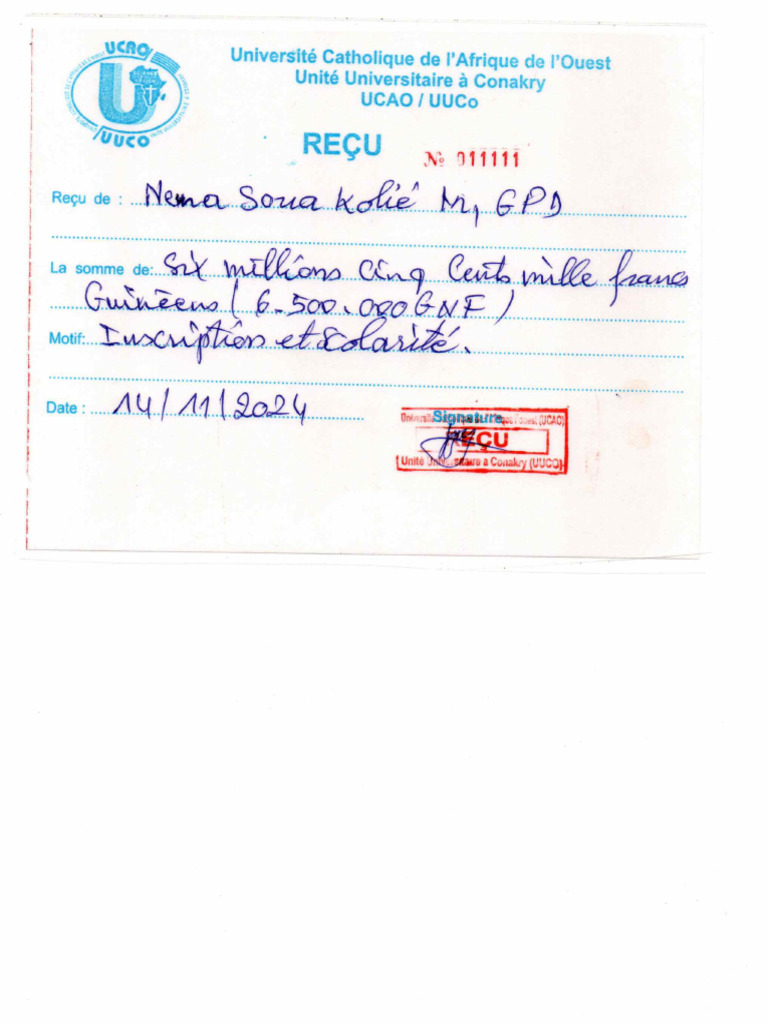 UCAO
UUCO
Université Catholique de l'Afrique de l'Ouest
Unité Universitaire à Conakry
UCAO / UUCo
REÇU
№ 011111
Reçu de : Nema Soua Kolié M1 GPD
La somme de: Six millions cinq Cents mille francs
Guinéens ( 6.500.000 GNF )
Motif: Inscription et scolarité.
Date : 14/11/2024
Signature
REÇU
Unité Universitaire à Conakry (UUCO)